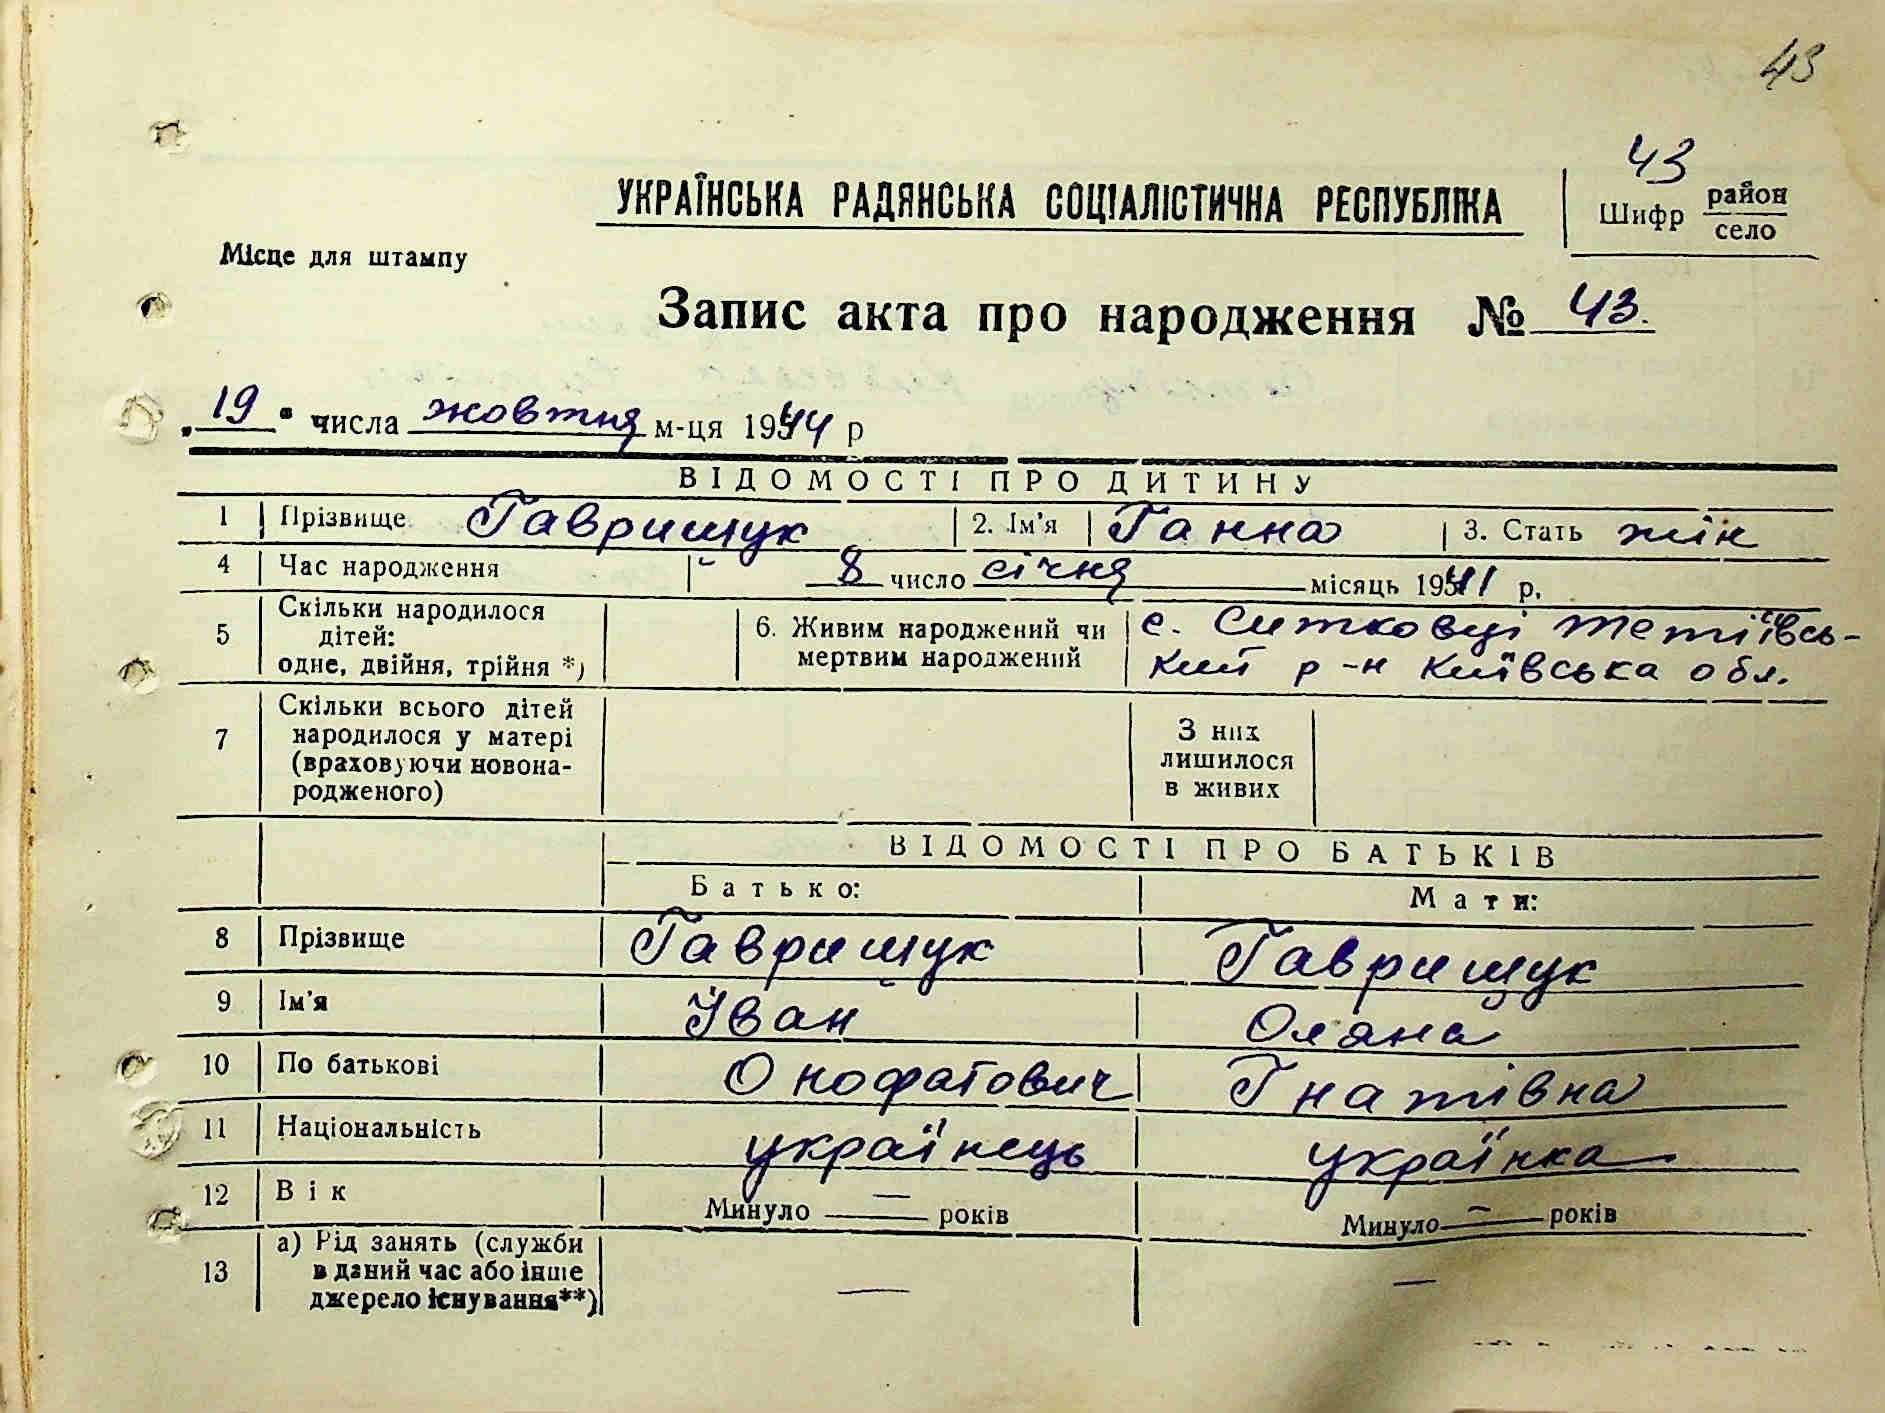 43
43
УКРАЇНСЬКА РАДЯНСЬКА СОЦІАЛІСТИЧНА РЕСПУБЛІКА
Шифр район
село
Місце для штампу
Запис акта про народження № 43.
„19" числа жовтня м-ця 1944 р
ВІДОМОСТІ ПРО ДИТИНУ
1 Прізвище Гаврищук 2. Ім'я Ганна 3. Стать жін
4 Час народження 8 число січня місяць 1941 р.
5 Скільки народилося дітей: одне, двійня, трійня *) 6. Живим народжений чи мертвим народжений с. Ситковці Тетіївсь-
кий р-н Київська обл.
7 Скільки всього дітей народилося у матері (враховуючи новона-родженого) З них лишилося в живих
ВІДОМОСТІ ПРО БАТЬКІВ
Батько: Мати:
8 Прізвище Гаврищук Гаврищук
9 Ім'я Іван Оляна
10 По батькові Онофатович Гнатівна
11 Національність українець українка
12 Вік Минуло — років Минуло — років
13 а) Рід занять (служби
в даний час або інше
джерело існування**) — —